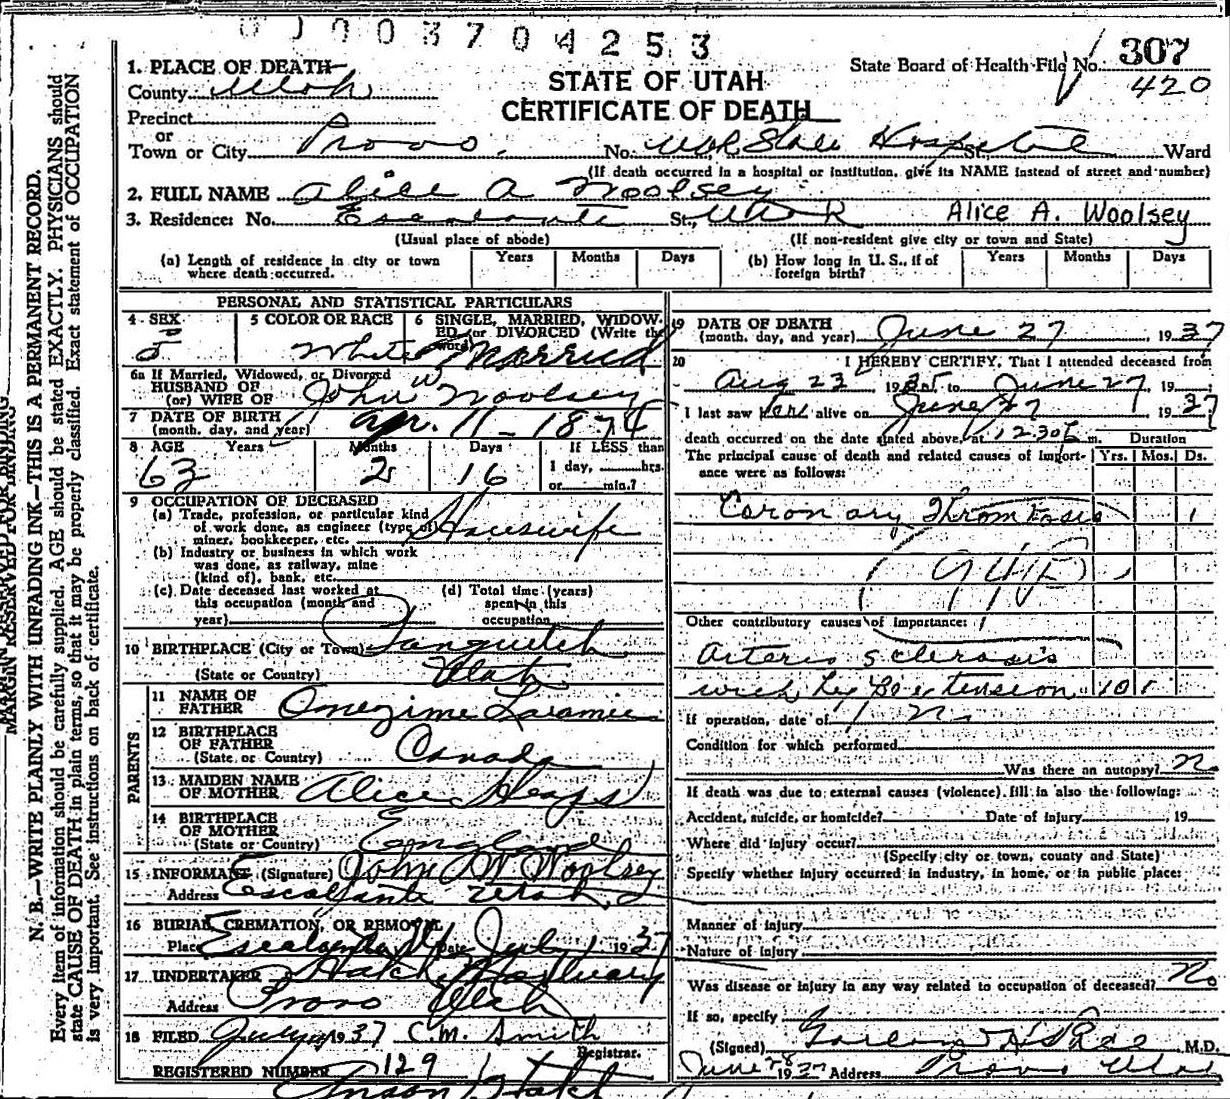 0 J 0 0 3 7 0 4 2 5 3
State Board of Health File No. 307
420
STATE OF UTAH
CERTIFICATE OF DEATH
1. PLACE OF DEATH
County Utah
Precinct
or
Town or City Provo. No. Utah State Hospital St., Ward
(If death occurred in a hospital or institution, give its NAME instead of street and number)
2. FULL NAME Alice A Woolsey
3. Residence: No. Escalante St., Utah Alice A. Woolsey
(Usual place of abode) (If non-resident give city or town and State)
(a) Length of residence in city or town where death occurred. Years Months Days
(b) How long in U. S., if of foreign birth? Years Months Days
PERSONAL AND STATISTICAL PARTICULARS
4 SEX
F
5 COLOR OR RACE
White
6 SINGLE, MARRIED, WIDOWED, or DIVORCED (Write the word)
Married
6a If Married, Widowed, or Divorced
HUSBAND OF
(or) WIFE OF John W Woolsey
7 DATE OF BIRTH
(month, day, and year) Apr. 11 - 1874
8 AGE Years Months Days If LESS than
63 2 16 1 day, hrs.
or min.?
9 OCCUPATION OF DECEASED
(a) Trade, profession, or particular kind
of work done, as engineer (type of)
miner, bookkeeper, etc. Housewife
(b) Industry or business in which work
was done, as railway, mine
(kind of), bank, etc.
(c) Date deceased last worked at
this occupation (month and
year)
(d) Total time (years)
spent in this
occupation
10 BIRTHPLACE (City or Town) Panguitch
(State or Country) Utah
PARENTS
11 NAME OF
FATHER Onezime Laramie
12 BIRTHPLACE
OF FATHER
(State or Country) Canada
13 MAIDEN NAME
OF MOTHER Alice Heaps
14 BIRTHPLACE
OF MOTHER
(State or Country) England
15 INFORMANT (Signature) John W Woolsey
Address Escalante Utah
16 BURIAL, CREMATION, OR REMOVAL
Place Escalante Ut Date July 1 1937
17 UNDERTAKER Hatch Mortuary
Address Provo Utah
18 FILED July 1937 C.M. Smith
Registrar.
REGISTERED NUMBER 129
Anson Hatch
19 DATE OF DEATH
(month, day, and year) June 27 1937
20 I HEREBY CERTIFY, That I attended deceased from
Aug 23 1935 to June 27, 19
I last saw her alive on June 27 1937
death occurred on the date stated above, at 12:30 m.
The principal cause of death and related causes of importance were as follows:
Duration
Yrs. Mos. Ds.
Coronary Thrombosis 1
94B
Other contributory causes of importance:
Arterio sclerosis
with hypertension 10
If operation, date of
Condition for which performed
Was there an autopsy? No
If death was due to external causes (violence) fill in also the following:
Accident, suicide, or homicide? Date of injury , 19
Where did injury occur?
(Specify city or town, county and State)
Specify whether injury occurred in industry, in home, or in public place:
Manner of injury
Nature of injury
Was disease or injury in any way related to occupation of deceased? No
If so, specify
(Signed) M.D.
June 28 1937 Address Provo Utah
MARGIN RESERVED FOR BINDING
N. B.—WRITE PLAINLY WITH UNFADING INK—THIS IS A PERMANENT RECORD.
Every item of information should be carefully supplied. AGE should be stated EXACTLY. PHYSICIANS should
state CAUSE OF DEATH in plain terms, so that it may be properly classified. Exact statement of OCCUPATION
is very important. See instructions on back of certificate.